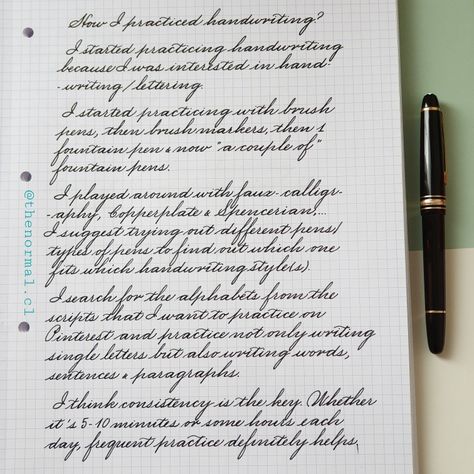 How I practiced handwriting?
I started practicing handwriting
because I was interested in hand-
writing/lettering.
I started practicing with brush
pens, then brush markers, then 1
fountain pen & now "a couple of"
fountain pens.
I played around with faux-calligr-
aphy, Copperplate & Spencerian,...
I suggest trying out different pens/
types of pens to find out which one
fits which handwriting style(s).
I search for the alphabets from the
scripts that I want to practice on
Pinterest and practice not only writing
single letters but also writing words,
sentences & paragraphs.
I think consistency is the key. Whether
it's 5-10 minutes or some hours each
day, frequent practice definitely helps.
@thenormal.cl